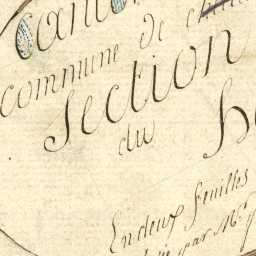 Canton
commune de
Section
du
En deux feuilles
par Mr